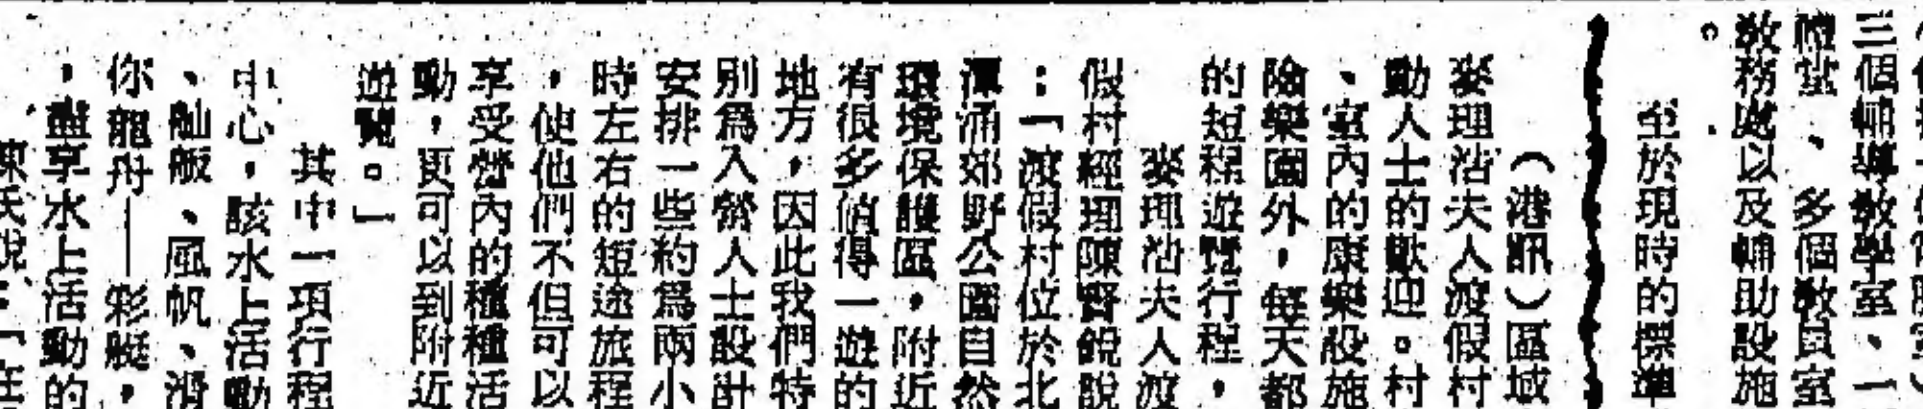 三個輔導教學室、一
禮堂、多個教員室
教務處以及輔助設施
。
至於現時的標準
（港訊）區域
麥理浩夫人渡假村
動人士的歡迎。村
、室內的康樂設施
險樂園外，每天都
的短程遊覽行程，
麥理浩夫人渡
假村經理陳賢銳說
：「渡假村位於北
潭涌郊野公園自然
環境保護區，附近
有很多值得一遊的
地方，因此我們特
別為入營人士設計
安排一些約為兩小
時左右的短途旅程
，使他們不但可以
享受營內的種種活
動，更可以到附近
遊覽。」
其中一項行程
中心，該水上活動
、舢舨、風帆、滑
你龍舟——彩艇，
，盡享水上活動的
陳氏說：「在